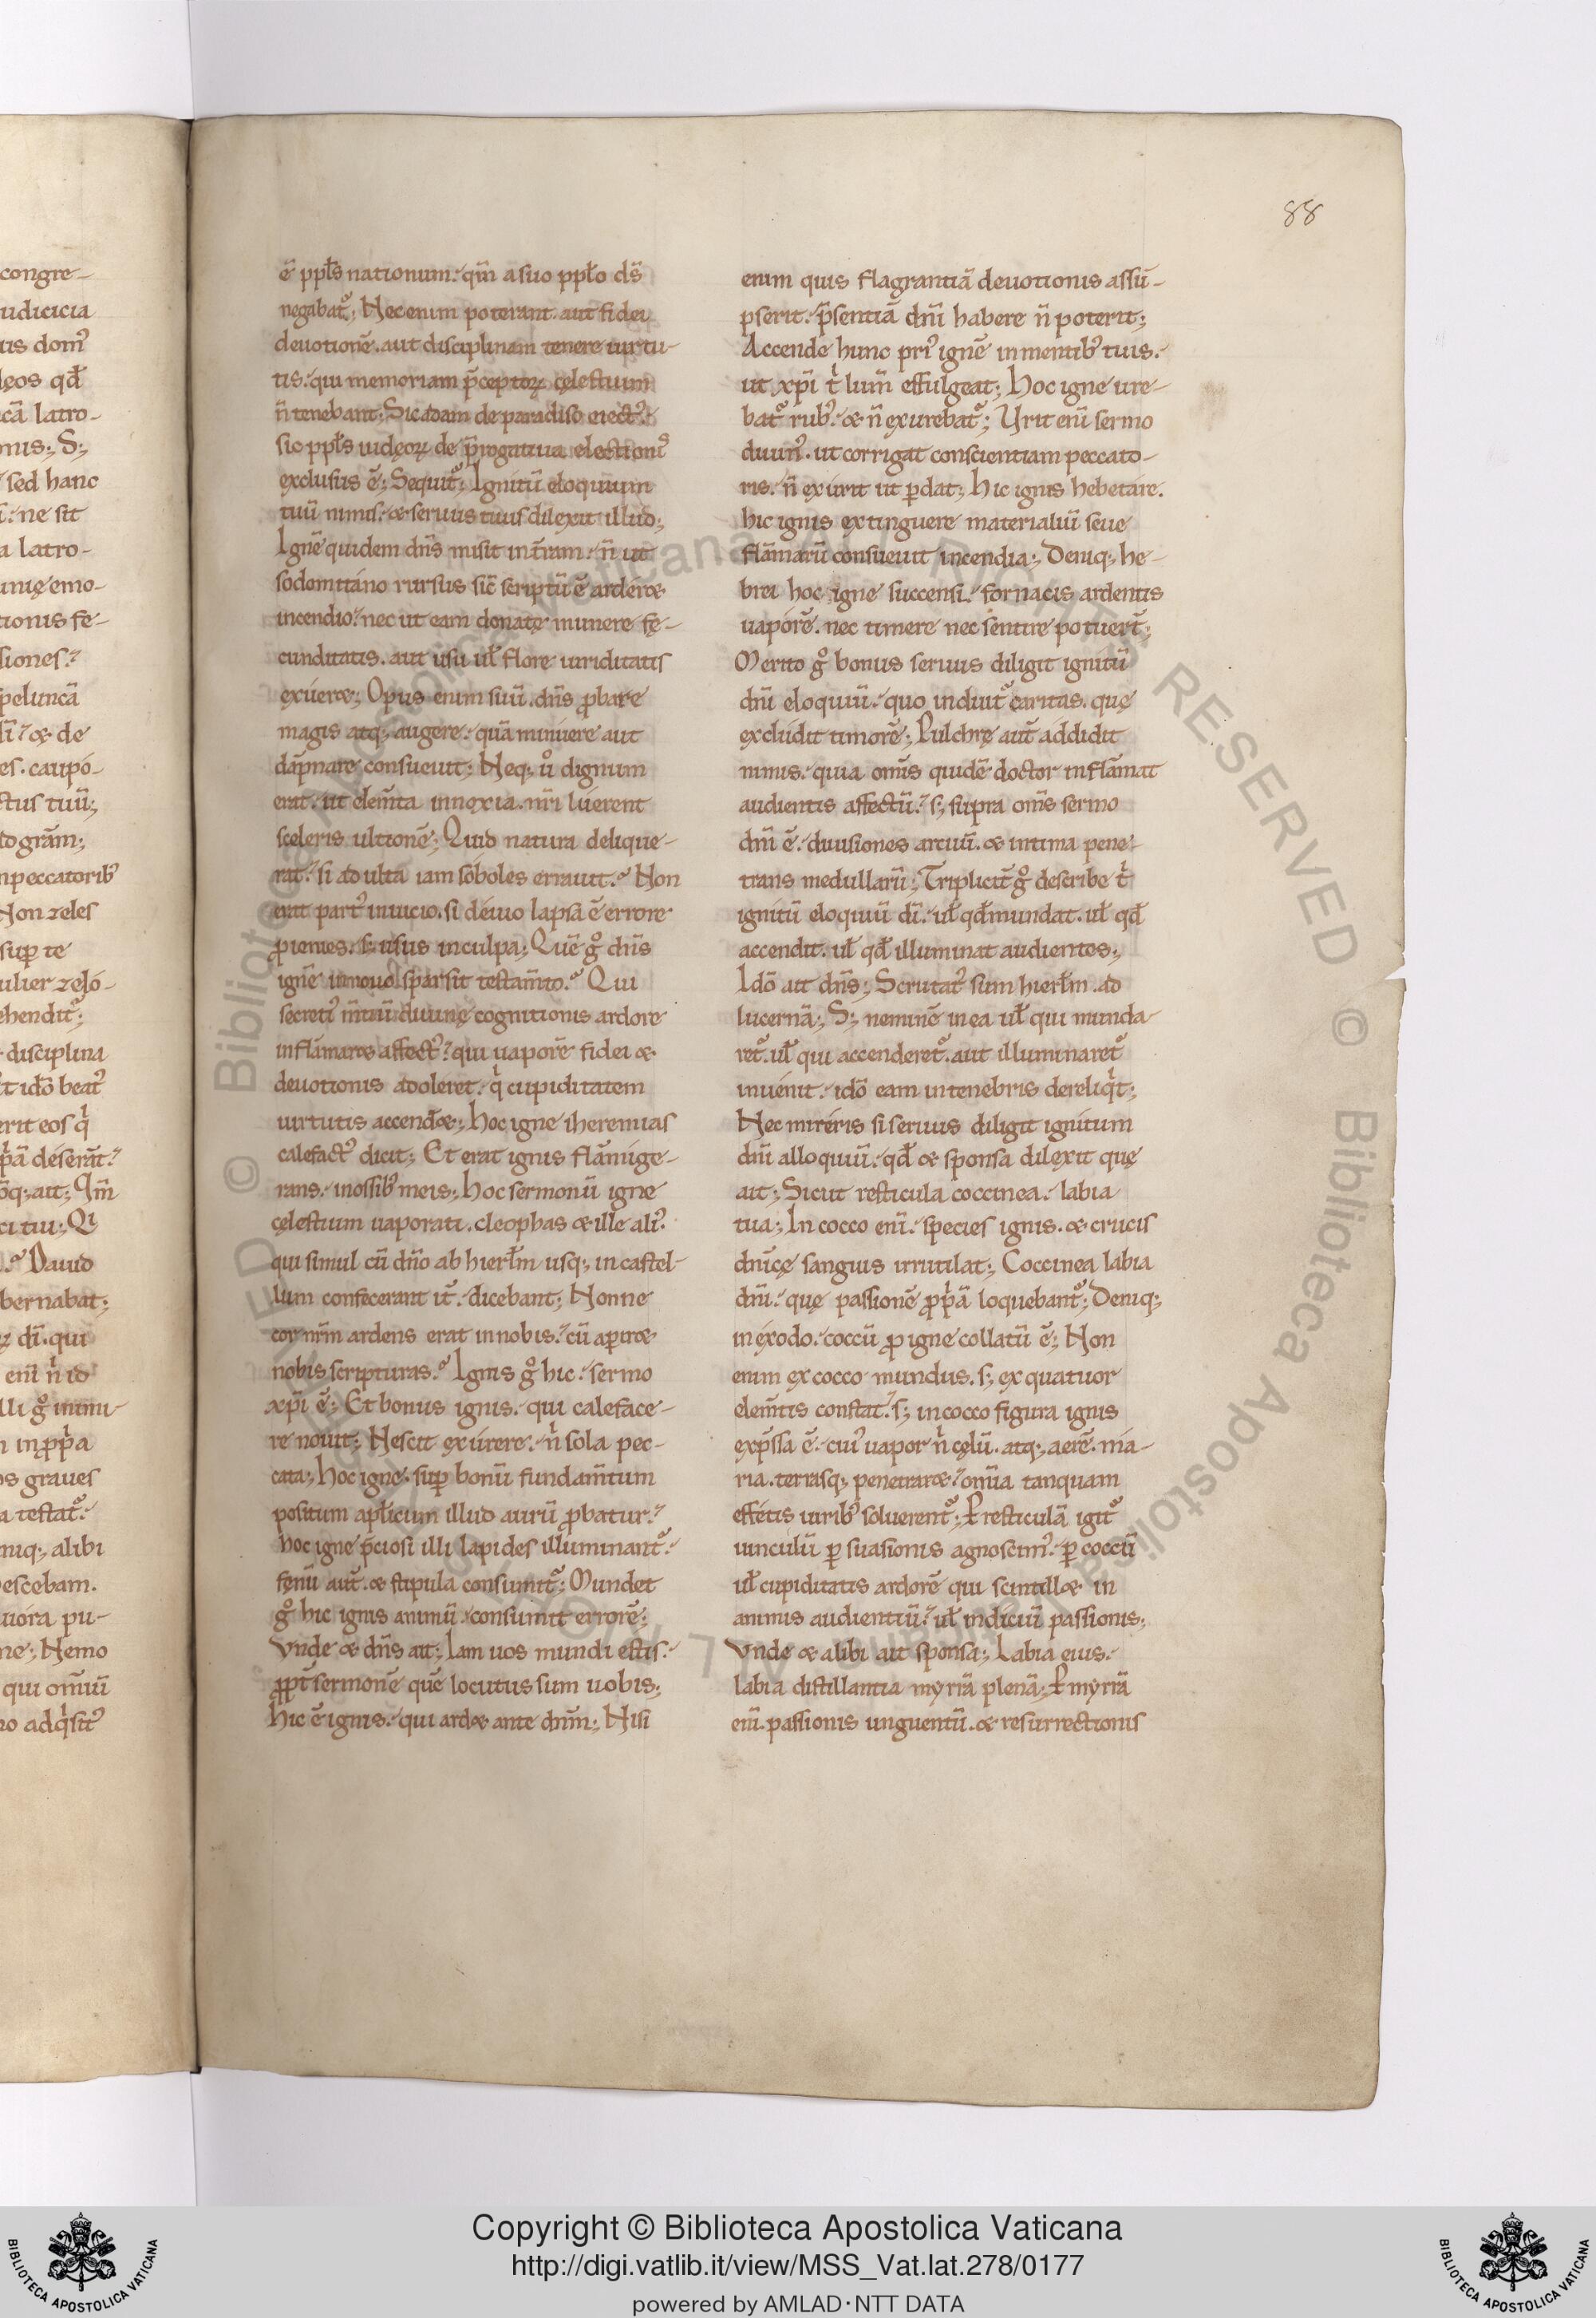 88
ē ppl̄s nationum. qm̄ a suo ppl̄o ds̄
negabat᷑; Nec enim poterant aut fidei
deuotionē. aut disciplinam tenere uirtu-
tis. qui memoriam p̄ceptoꝝ cęlestium
n̄ tenebant; Sic adam de paradiso eiect᷒.
sic ppl̄s iudęoꝝ de p̄rogatiua election᷒
exclusus ē; Sequit᷑; Ignitū eloquium
tuū nimis. & seruus tuus dilexit illud;
Ignē quidem dn̄s misit in t̄ram. n̄ ut
sodomitano rursus sic̄ scriptū ē arderet
incendio. nec ut eam donatę munere fę-
cunditatis. aut usu ul̄ flore uiriditatis
exueret; Opus enim suū. dn̄s ꝓbare
magis atq; augere. quā minuere aut
dāpnare consueuit; Neq; u᷎o dignum
erat. ut elem̄ta innoxia. nr̄i luerent
sceleris ultionē; Quid natura delique-
rat. si adulta iam soboles errauit. Non
erat part᷒ in uicio. si deuio lapsa ē errore
ꝓienies. s; usus in culpa; Quē gͦ dn̄s
ignē in nouo sparsit testam̄to. Qui
secreti᷒ m̄tiū diuinę cognitionis ardore
inflāmaret affect᷒. qui uaporē fidei &
deuotionis adoleret. qͥ cupiditatem
uirtutis accend&; Hoc igne iheremias
calefact᷒ dicit; Et erat ignis flāmige-
rans. in ossib᷒ meis; Hoc sermonū igne
cęlestium uaporati. cleophas & ille ali᷒.
qui simul cū dn̄o ab hierl̄m usq; in castel-
lum confecerant it̄. dicebant; Nonne
cor nr̄m ardens erat in nobis. cū aperiret
nobis scripturas. Ignis gͦ hic. sermo
xp̄i ē; Et bonus ignis. qui caleface-
re nouit; Nescit exurere. nͥ sola pec-
cata; Hoc igne. suꝑ bonū fundam̄tum
positum apl̄icum illud aurū ꝓbatur.
hoc igne p̄ciosi illi lapides illuminant᷑.
fęnū aut̄. & stipula consumit᷑; Mundet
gͦ hic ignis animū. consumit errorē;
Vnde & dn̄s ait; Iam uos mundi estis.
ꝓpt̄ sermonē quē locutus sum uobis;
Hic ē ignis. qui ard& ante dn̄m; Nisi
enim quis flagrantiā deuotionis assū-
pserit. p̄sentiā dn̄i habere n̄ poterit;
Accende hunc pri᷒ ignē in mentib᷒ tuis.
ut xp̄i tͥ lum̄ effulgeat; Hoc igne ure-
bat᷑ rub᷒. & n̄ exurebat᷑; Vrit enī sermo
diuin᷒. ut corrigat conscientiam peccato-
ris. n̄ exurit ut ꝑdat; Hic ignis hebetare.
hic ignis extinguere materialiū seue
flāmarū consueuit incendia; Deniq; he-
brei hoc igne succensi. fornacis ardentis
uaporē. nec timere nec sentire potuert̄;
Merito gͦ bonus seruus diligit ignitū
dn̄i eloquiū. quo induit᷑ caritas. quę
excludit timorē; Pulchrę aut̄ addidit
nimis. quia omīs quidē doctor inflāmat
audientis affectū. s; supra omīs sermo
dn̄i ē. diuisiones artuū. & intima pene-
trans medullarū; Triplicit̄ gͦ describe tͥ
ignitū eloquiū dī. ul̄ qd̄ mundat. ul̄ qd̄
accendit. ul̄ qd̄ illuminat audientes;
Idō ait dn̄s; Scrutat᷒ sum hierl̄m. ad
lucernā; S; neminē in ea ul̄ qui munda-
ret᷑. ul̄ qui accenderet᷑. aut illuminaret᷑
inuenit. idō eam in tenebris dereliqͥt;
Nec mireris si seruus diligit ignitum
dn̄i alloquiū. qd̄ & sponsa dilexit quę
ait; Sicut resticula coccinea. labia
tua; In cocco enī. species ignis. & crucis
dn̄icę sanguis irrutilat; Coccinea labia
dn̄i. quę passionē ꝓpͥā loquebant᷑; Deniq;
in exodo. coccū ꝓ igne collatū ē; Non
enim ex cocco mundus. s; ex quatuor
elem̄tis constat. s; in cocco figura ignis
exp̄ssa ē. cui᷒ uapor nͥ cęlū. atq; aerē. ma-
ria. terrasq; penetraret. om̄ia tanquam
effetis uirib᷒ soluerent᷑; Ꝑ resticulā igit᷑
uinculū ꝑsuasionis agnoscim᷒. ꝑ coccū
ul̄ cupiditatis ardorē qui scintill& in
animis audientiū. ul̄ indiciū passionis;
Vnde & alibi ait sponsa; Labia eius.
labia distillantia myrrā plenā; Ꝑ myrrā
enī. passionis unguentū. & resurrectionis
congre-
udicicia
us dom᷒
ęos qd̄
cā latro-
nis; S;
sed hanc
ne sit
a latro-
unię emo-
tionis fe-
siones.
peluncā
& de
es. caupo-
ctus tuū;
togrām;
npeccatorib᷒
Non zeles
suꝑ te
ulier zelo-
ehendit᷑;
disciplina
t idō beat᷒
erit eos qͥ
pͥā deserāt.
q; ait; Qm̄
ci tui; Qi
Dauid
bernabat;
ꝝ dī. qui
enī nͥ id
lli gͦ inimi-
n inꝓpͥa
os graues
a testat᷑.
niq; alibi
escebam.
uora pu-
ne; Nemo
qui omīū
no adqͥsit᷒
© Biblioteca Apostolica Vaticana ALL RIGHTS RESERVED
© Biblioteca Apostolica Vaticana ALL RIGHTS RESERVED
Copyright © Biblioteca Apostolica Vaticana
http://digi.vatlib.it/view/MSS_Vat.lat.278/0177
powered by AMLAD·NTT DATA
BIBLIOTECA APOSTOLICA VATICANA
BIBLIOTECA APOSTOLICA VATICANA